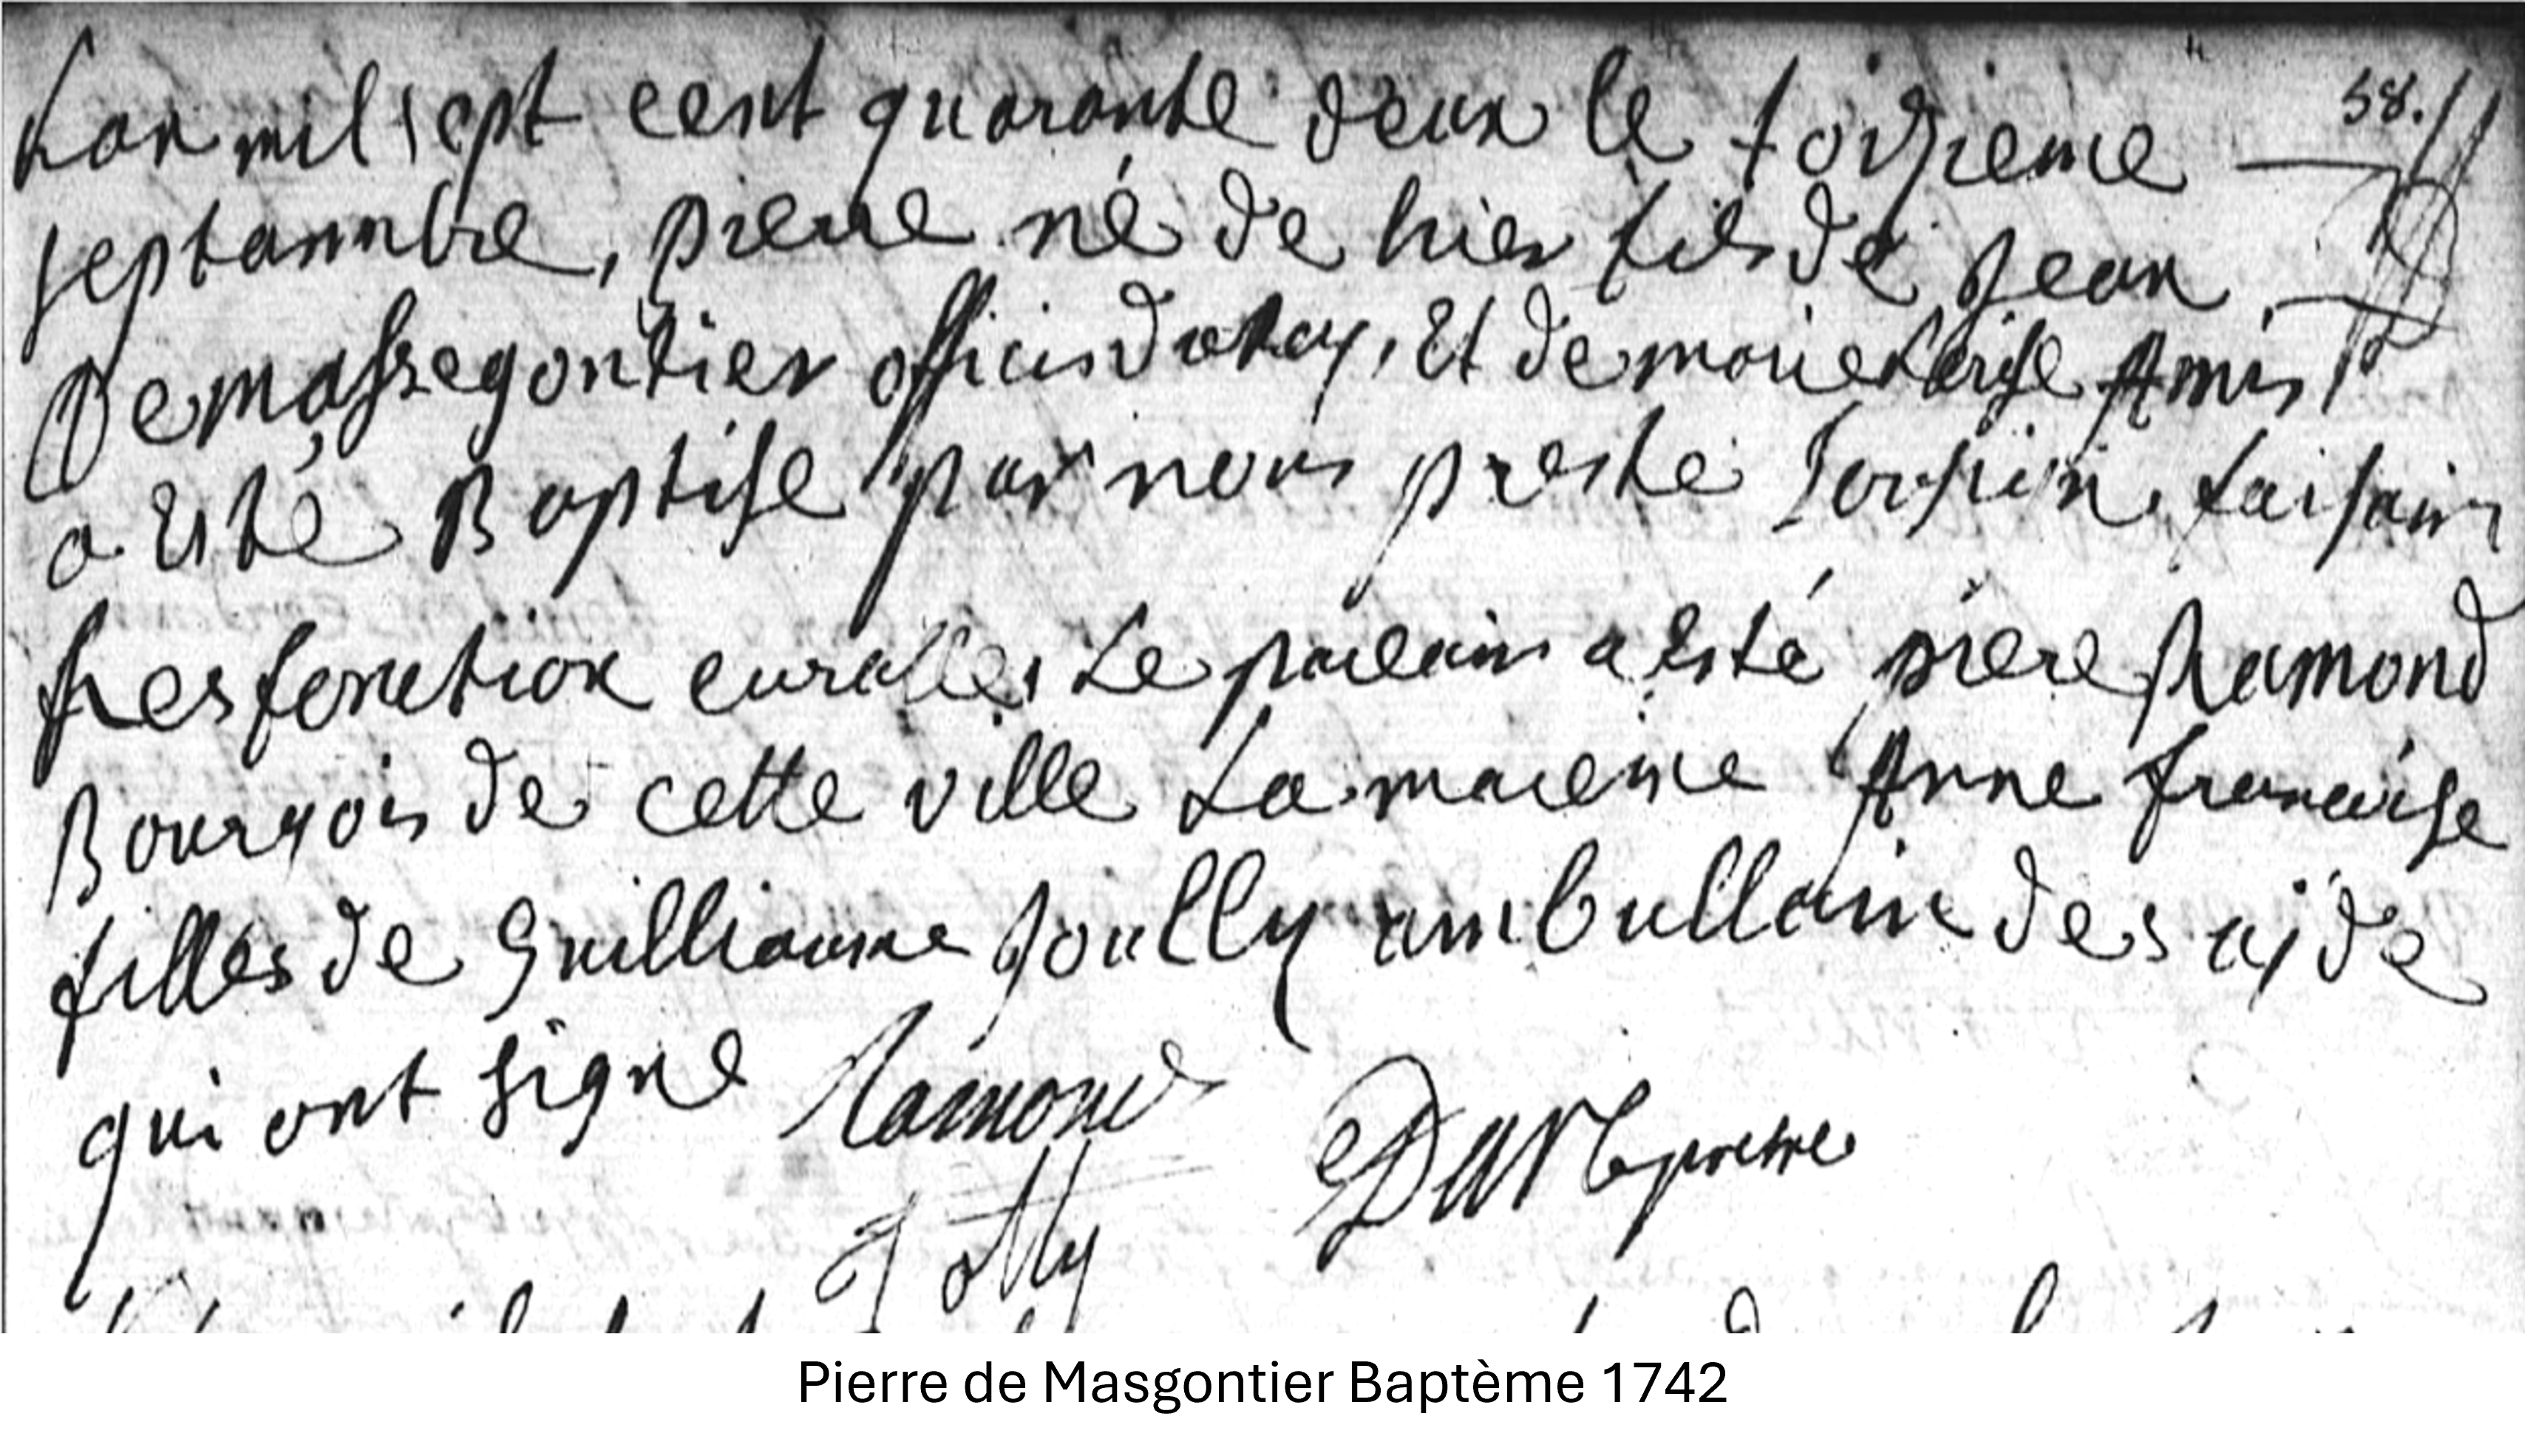 Lan mil sept cent quarante deux le 58.
septammbre, pierre né de hier fils de Jean
Demassegontier officier du Roy, Et de marie Amis
a Esté Baptise par nous preste faisain
fonction curalles Le parain a Esté piere Ramond
Bourgois de cette ville La maraine Anne francoise
filles de Guilliaume Joully ambullain des ajde
qui ont signe Ramond
Jolly pretre
Pierre de Masgontier Baptème 1742